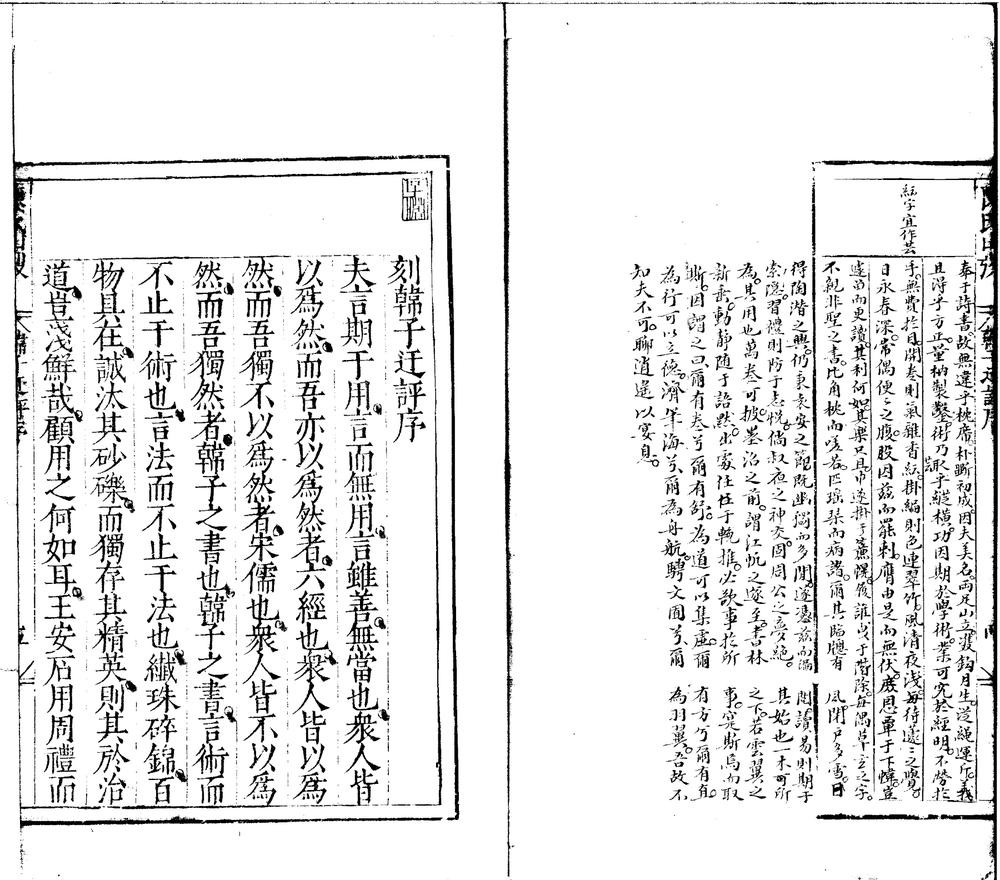 紜字宜作芸
奉于詩書故無違乎桃廣朴斷初成因夫美名兩足山立雙鈎月生從繩運斤義
且得乎方正量枘製鑿術乃取乎縱橫功因期於學術業可究於經明不勞於
手無費於目開卷則氣雜香紜掛編則色連翠竹風清夜淺每待蘧之覺
日永春深常偶便之腹股因兹而罷刺膺由是而無伏庶恩覃于下幃豈
遽筋而更讀其利何如其樂只且巾遂掛于簷幌後誰曳于階除每偶草玄之字
不親非聖之書比角桃而嗟若匹瑤琹而病諸爾其臨牕有風閉戶多雪自
得陶潛之興仍秉袁安之節既幽獨而多閒遂憑兹而遍閱讀易則期于
索隱習禮則防于志悅倘叔夜之神交固周公之夢絕其始也一木可所
為其用也萬卷可披墨沿之前謂江帆之遽至書林之下若雲翼之
新垂動靜随于語默出處任于輗推必欲事於所事寔斯焉而取
斯因謂之曰爾有卷兮爾有舒為道可以集虛爾有方兮爾有直
為行可以立德濟筆海兮爾為舟航騁文囿兮爾為羽翼吾故不
知夫不可聊逍遙以宴息
刻韓子迂評序
夫言期于用言而無用言雖善無當也衆人皆
以爲然而吾亦以爲然者六經也衆人皆以爲
然而吾獨不以爲然者宋儒也衆人皆不以爲
然而吾獨然者韓子之書也韓子之書言術而
不止于術也言法而不止于法也纎珠碎錦百
物具在誠汰其砂礫而獨存其精英則其於治
道豈淺鮮哉顧用之何如耳王安石用周禮而